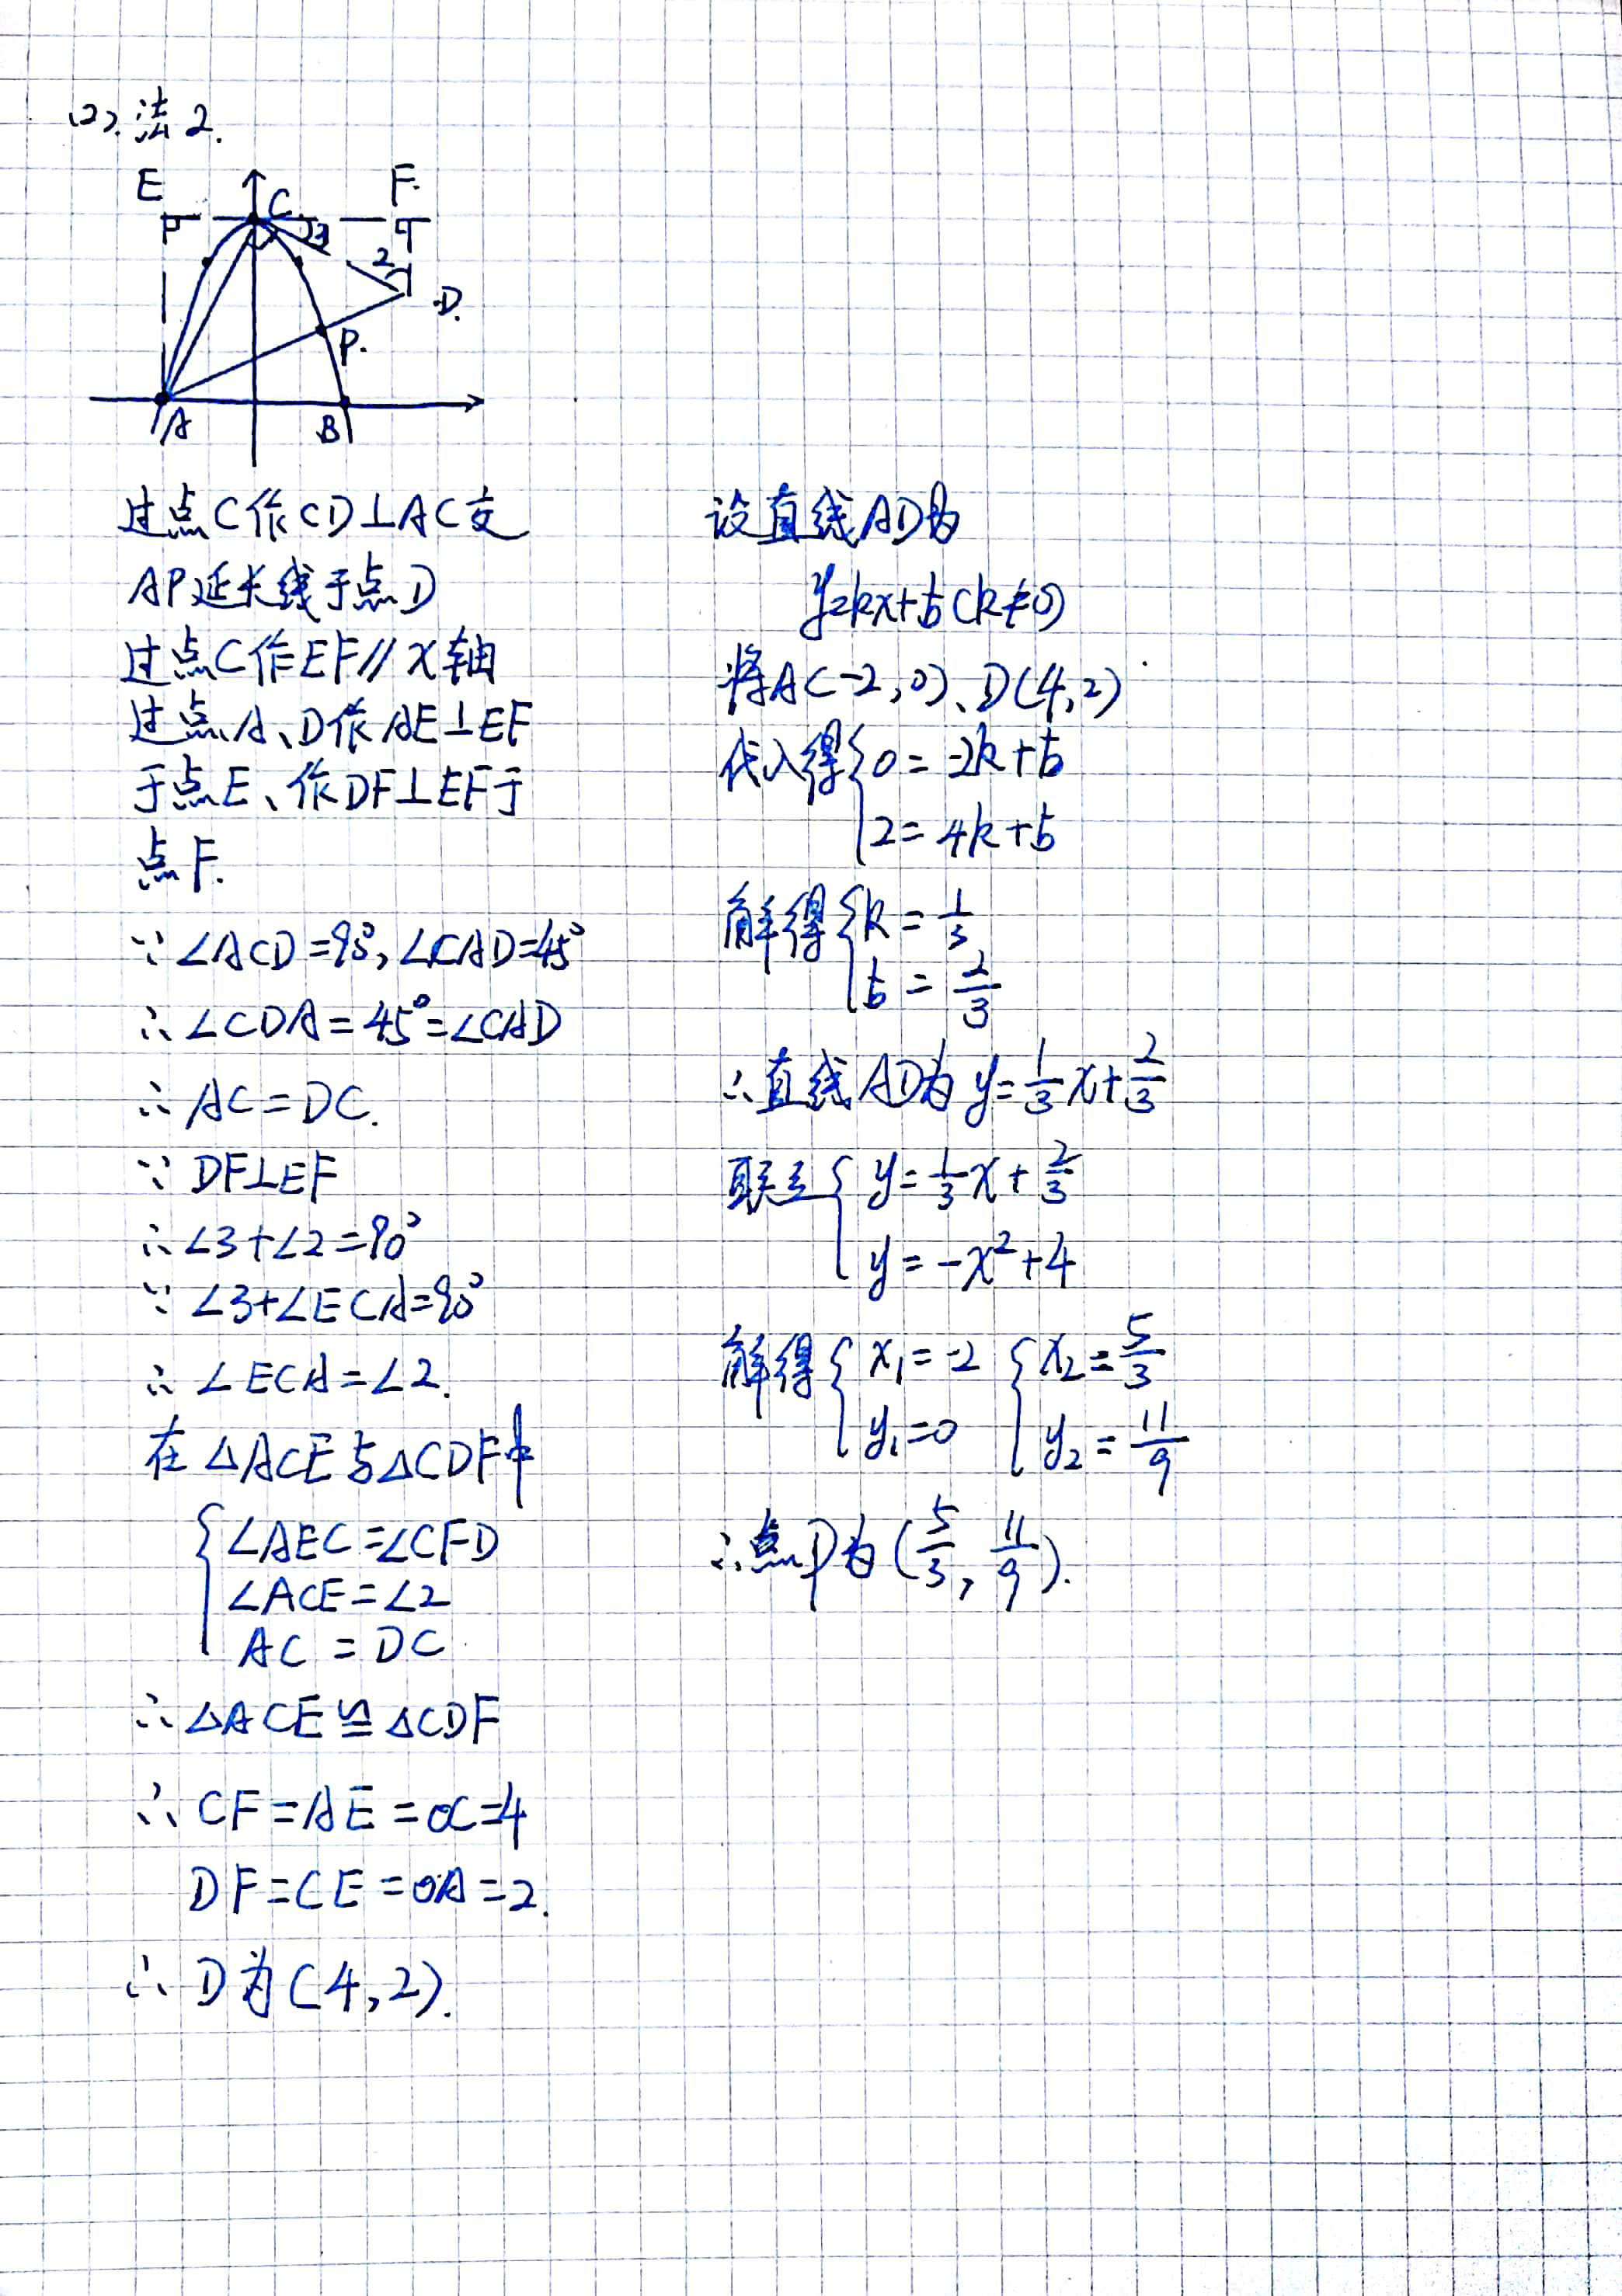 (2). 法2.
E
F.
C
3
2
D.
P.
A
B
过点C作CD⊥AC交
AP延长线于点D
过点C作EF∥x轴
过点A、D作AE⊥EF
于点E、作DF⊥EF于
点F.
∵∠ACD=90°,∠CAD=45°
∴∠CDA=45°=∠CAD
∴AC=DC.
∵DF⊥EF
∴∠3+∠2=90°
∵∠3+∠ECA=90°
∴∠ECA=∠2.
在△ACE与△CDF中
{∠AEC=∠CFD
∠ACE=∠2
AC=DC
∴△ACE≌△CDF
∴CF=AE=OC=4
DF=CE=OA=2.
∴D为(4,2).
设直线AD为
y=kx+b(k≠0)
将A(-2,0)、D(4,2)
代入得{0=-2k+b
2=4k+b
解得{k=1/3
b=2/3
∴直线AD为y=1/3x+2/3
联立{y=1/3x+2/3
y=-x²+4
解得{x₁=-2 {x₂=5/3
y₁=0 y₂=11/9
∴点P为(5/3,11/9).